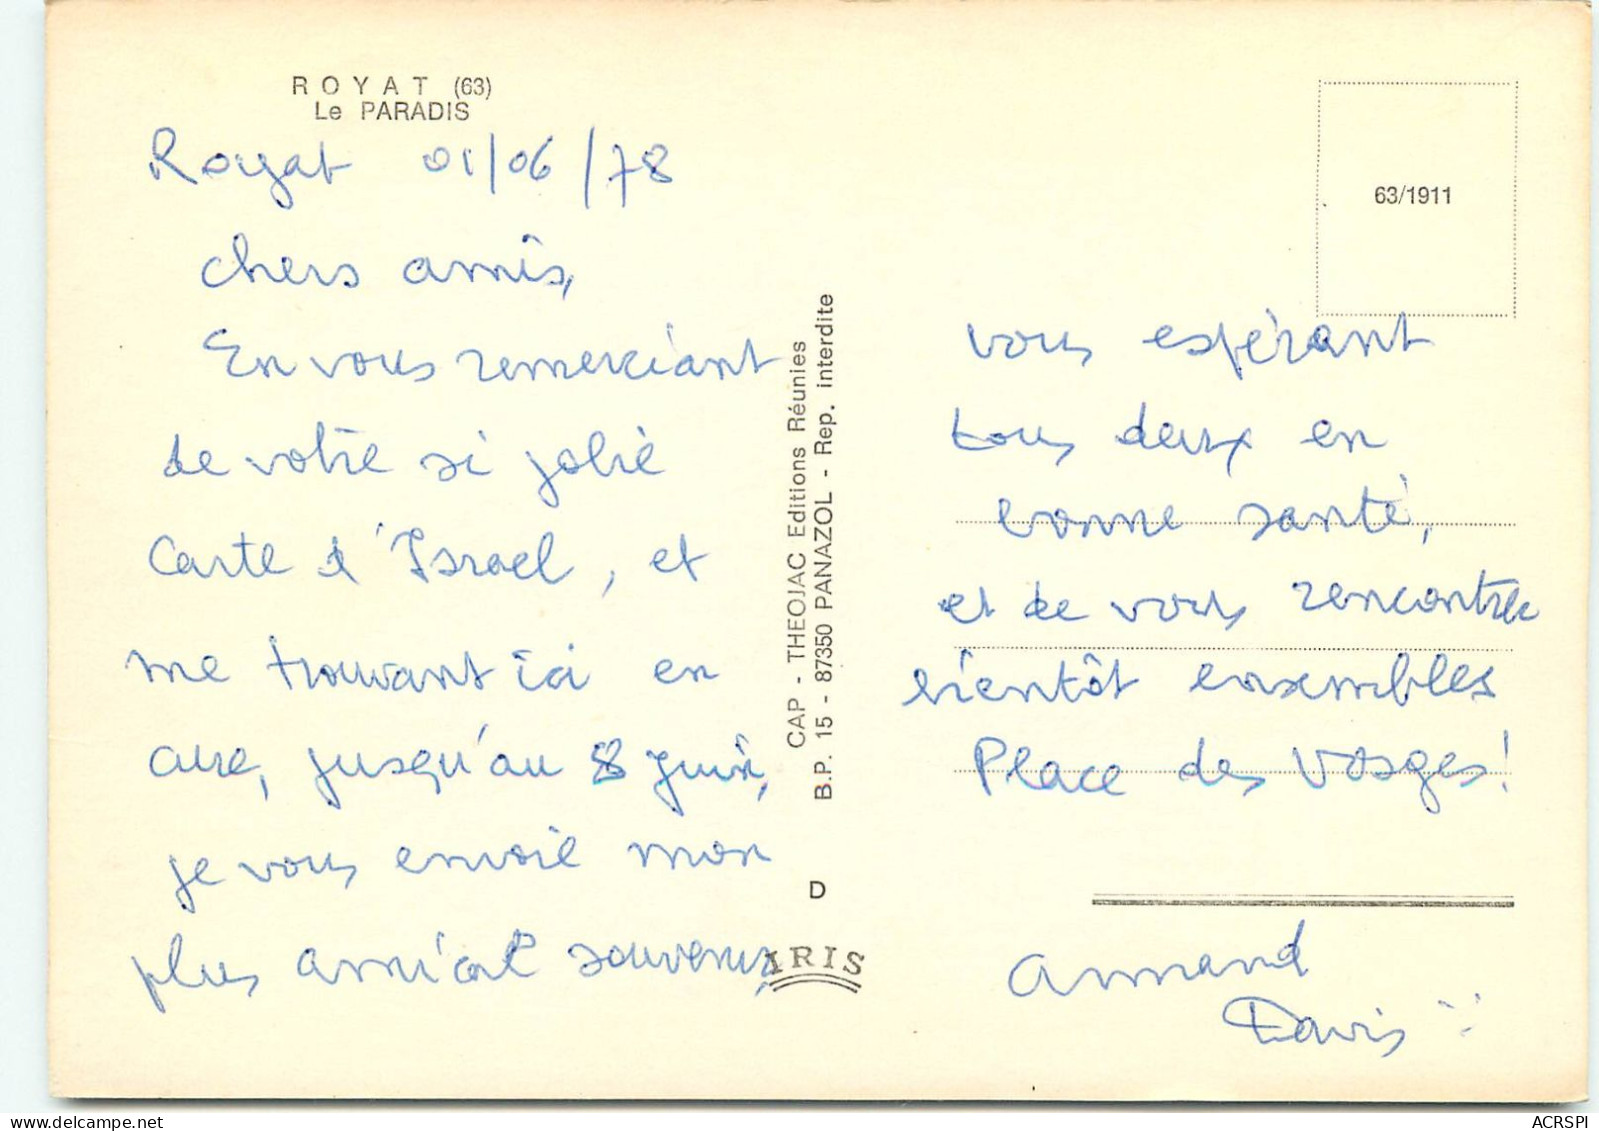 ROYAT (63)
Le PARADIS
Royat 01/06/78
chers amis,
En vous remerciant
de votre si jolie
Carte d'Israel, et
me trouvant ici en
cure, jusqu'au 8 Juin,
je vous envoie mon
plus amical souvenir,
CAP - THEOJAC Editions Réunies
B.P. 15 - 87350 PANAZOL - Rep. interdite
D
IRIS
63/1911
vous espérant
tous deux en
bonne santé,
et de vous rencontrer
bientôt ensembles
Place des Vosges!
Armand
Davis
ACRSPI